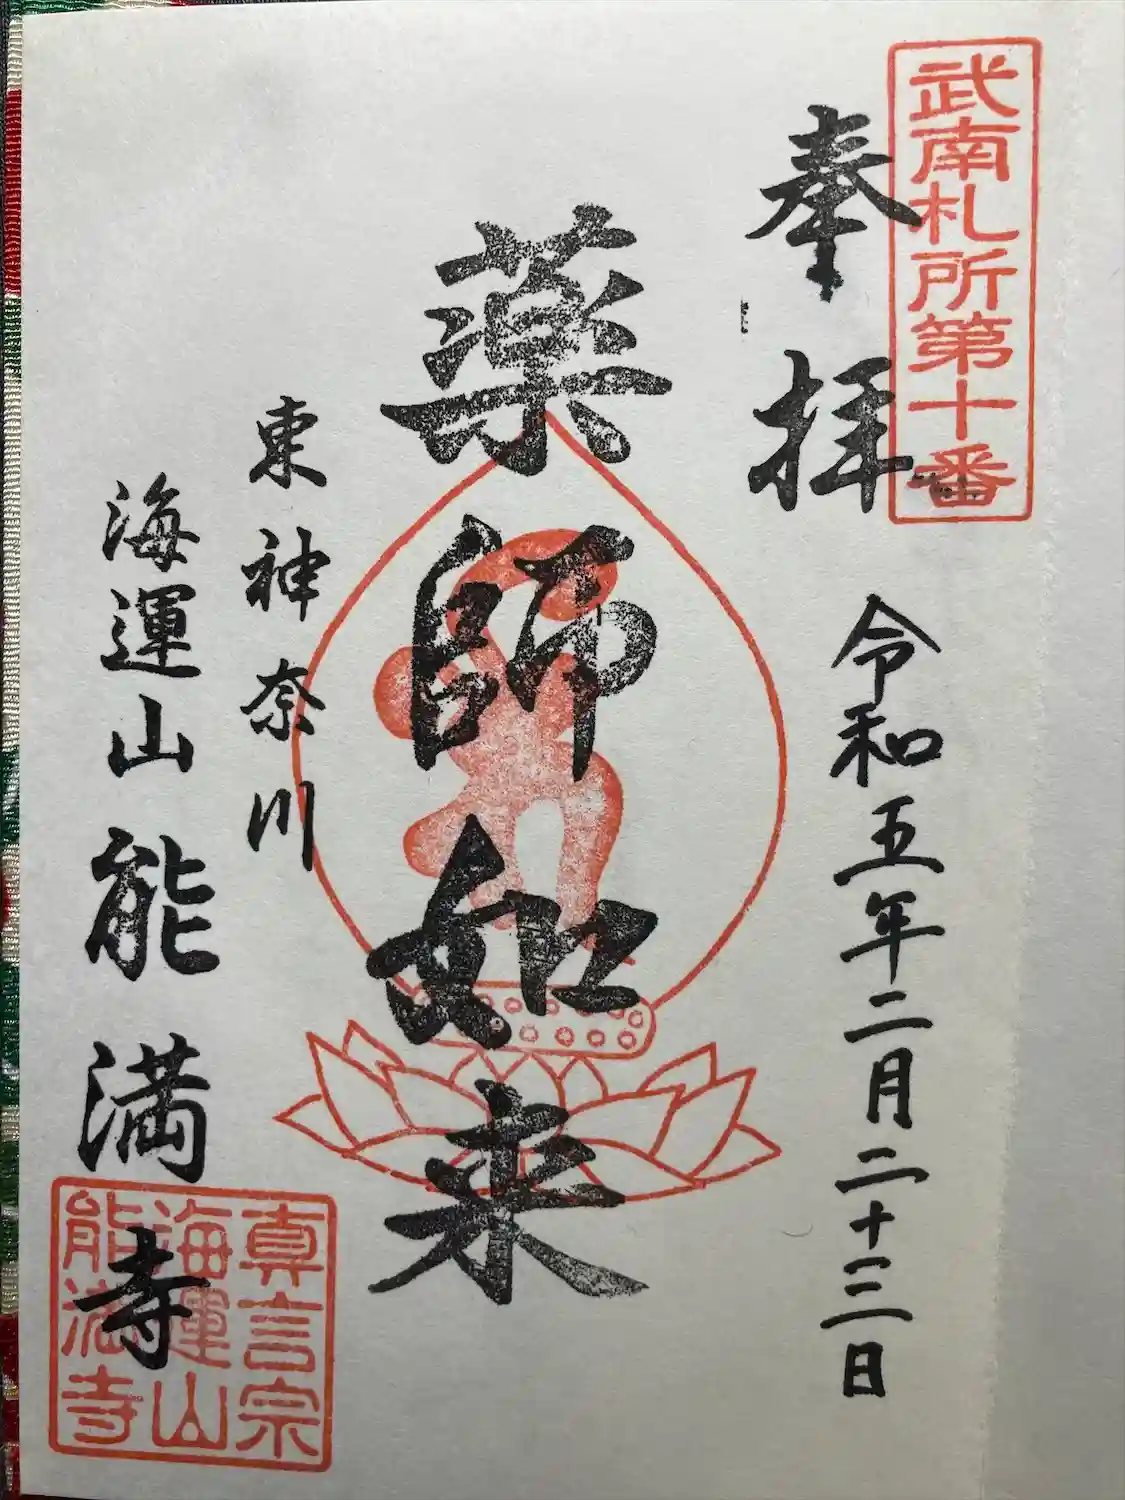 武南札所第十番
奉拝
令和五年二月二十三日
薬師如来
東神奈川
海運山能満寺
真言宗
海運山
能満寺